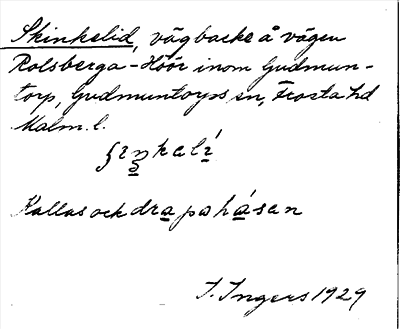 Skinkelid, vägbacke å vägen
Rolsberga-Höör inom Gudmun-
torp, Gudmuntorps sn, Frosta hd
Malm. l.
ʃıŋkalí
Kallas ock drapahásan
I. Ingers 1929